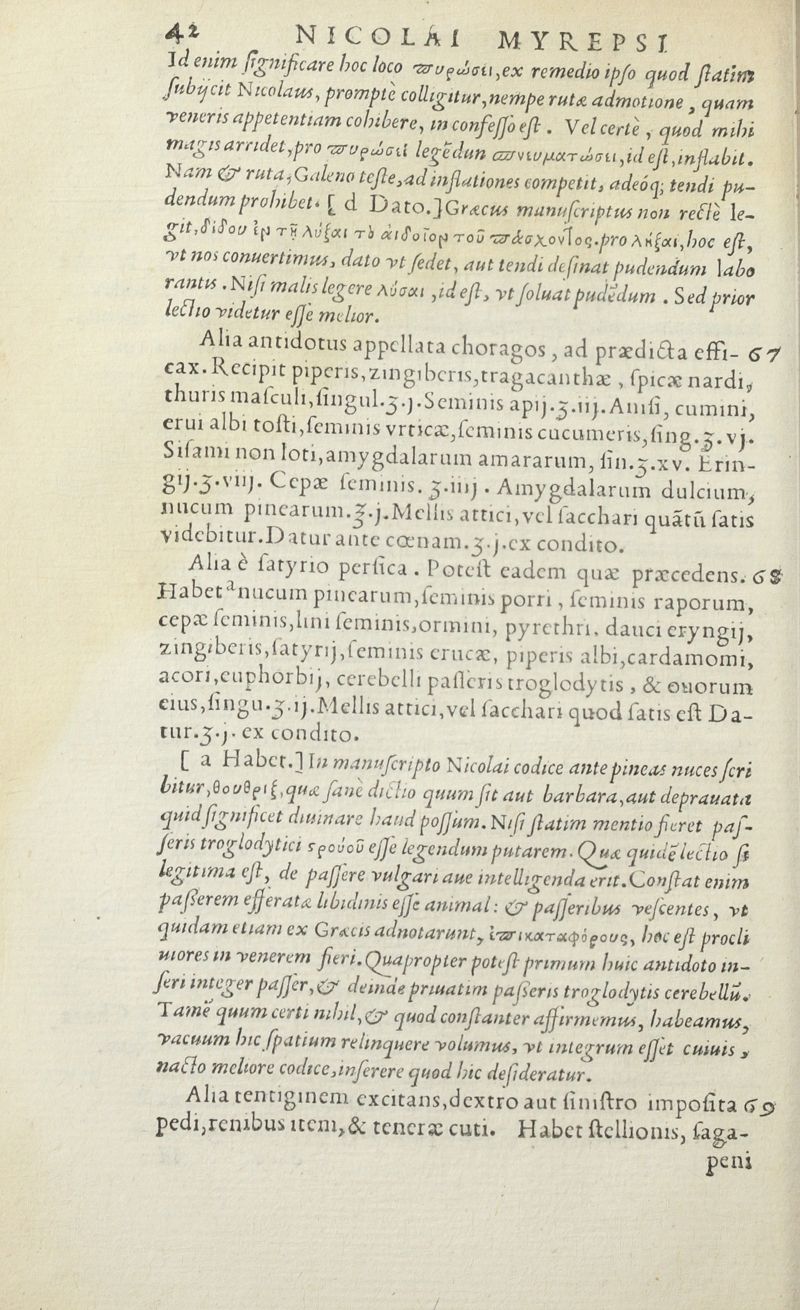 42 NICOLAI MYREPSI
Id enim ſignificare hoc loco πυρώσει, ex remedio ipſo quod ſtatim
ſubijcit Nicolaus, prompte colligitur, nempe rutæ admotione, quam
veneris appetentiam cohibere, in confeſſo eſt. Vel certè, quod mihi
magis arridet, pro πυρώσει legēdum πνευματώσει, id eſt, inflabit.
Nam & ruta, Galeno teſte, ad inflationes competit, adeóq; tendi pu-
dendum prohibet. [ d Dato.] Græcus manuſcriptus non rectè le-
git, δίδου ἐπὶ τῷ λύξαι τὸ αἰδοῖον τοῦ πάσχοντος. pro λῆξαι, hoc eſt,
vt nos conuertimus, dato vt ſedet, aut tendi deſinat pudendum labo
rantis. Niſi malis legere λύσαι, id eſt, vt ſoluat pudēdum. Sed prior
lectio videtur eſſe melior.
Alia antidotus appellata choragos, ad prædicta effi- 67
cax. Recipit piperis, zingiberis, tragacanthæ, ſpicæ nardi,
thuris maſculi, ſingul.ʒ.j. Seminis apij.ʒ.iij. Aniſi, cumini,
erui albi toſti, ſeminis vrticæ, ſeminis cucumeris, ſing.ʒ.vj.
Siſami non loti, amygdalarum amararum, ſin.ʒ.xv. Erin-
gij.ʒ.viij. Cepæ ſeminis.ʒ.iiij. Amygdalarum dulcium,
nucum pinearum.℥.j. Mellis attici, vel ſacchari quātū ſatis
videbitur. Datur ante cœnam.ʒ.j. ex condito.
Alia è ſatyrio perſica. Poteſt eadem quæ præcedens. 68
Habet ᵃ nucum pinearum, ſeminis porri, ſeminis raporum,
cepæ ſeminis, lini ſeminis, ormini, pyrethri, dauci eryngij,
zingiberis, ſatyrij, ſeminis erucæ, piperis albi, cardamomi,
acori, euphorbij, cerebelli paſſeris troglodytis, & ouorum
eius, ſingu.ʒ.ij. Mellis attici, vel ſacchari quod ſatis eſt Da-
tur.ʒ.j. ex condito.
[ a Habet.] In manuſcripto Nicolai codice ante pineas nuces ſcri
bitur, θουθριξ, quæ ſanè dictio quum ſit aut barbara, aut deprauata
quid ſignificet diuinare haud poſſum. Niſi ſtatim mentio fieret paſ-
ſeris troglodytici ςρουθοῦ eſſe legendum putarem. Quæ quidē lectio ſi
legitima eſt, de paſſere vulgari aue intelligenda erit. Conſtat enim
paſſerem efferatæ libidinis eſſe animal: & paſſeribus veſcentes, vt
quidam etiam ex Græcis adnotarunt, ἐπικαταφόρους, hoc eſt procli
uiores in venerem fieri. Quapropter poteſt primum huic antidoto in-
ſeri integer paſſer, & deinde priuatim paſſeris troglodytis cerebellū.
Tamē quum certi nihil, & quod conſtanter affirmemus, habeamus,
vacuum hic ſpatium relinquere volumus, vt integrum eſſet cuiuis,
nacto meliore codice, inſerere quod hic deſideratur.
Alia tentiginem excitans, dextro aut ſiniſtro impoſita 69
pedi, renibus item, & teneræ cuti. Habet ſtellionis, ſaga-
peni